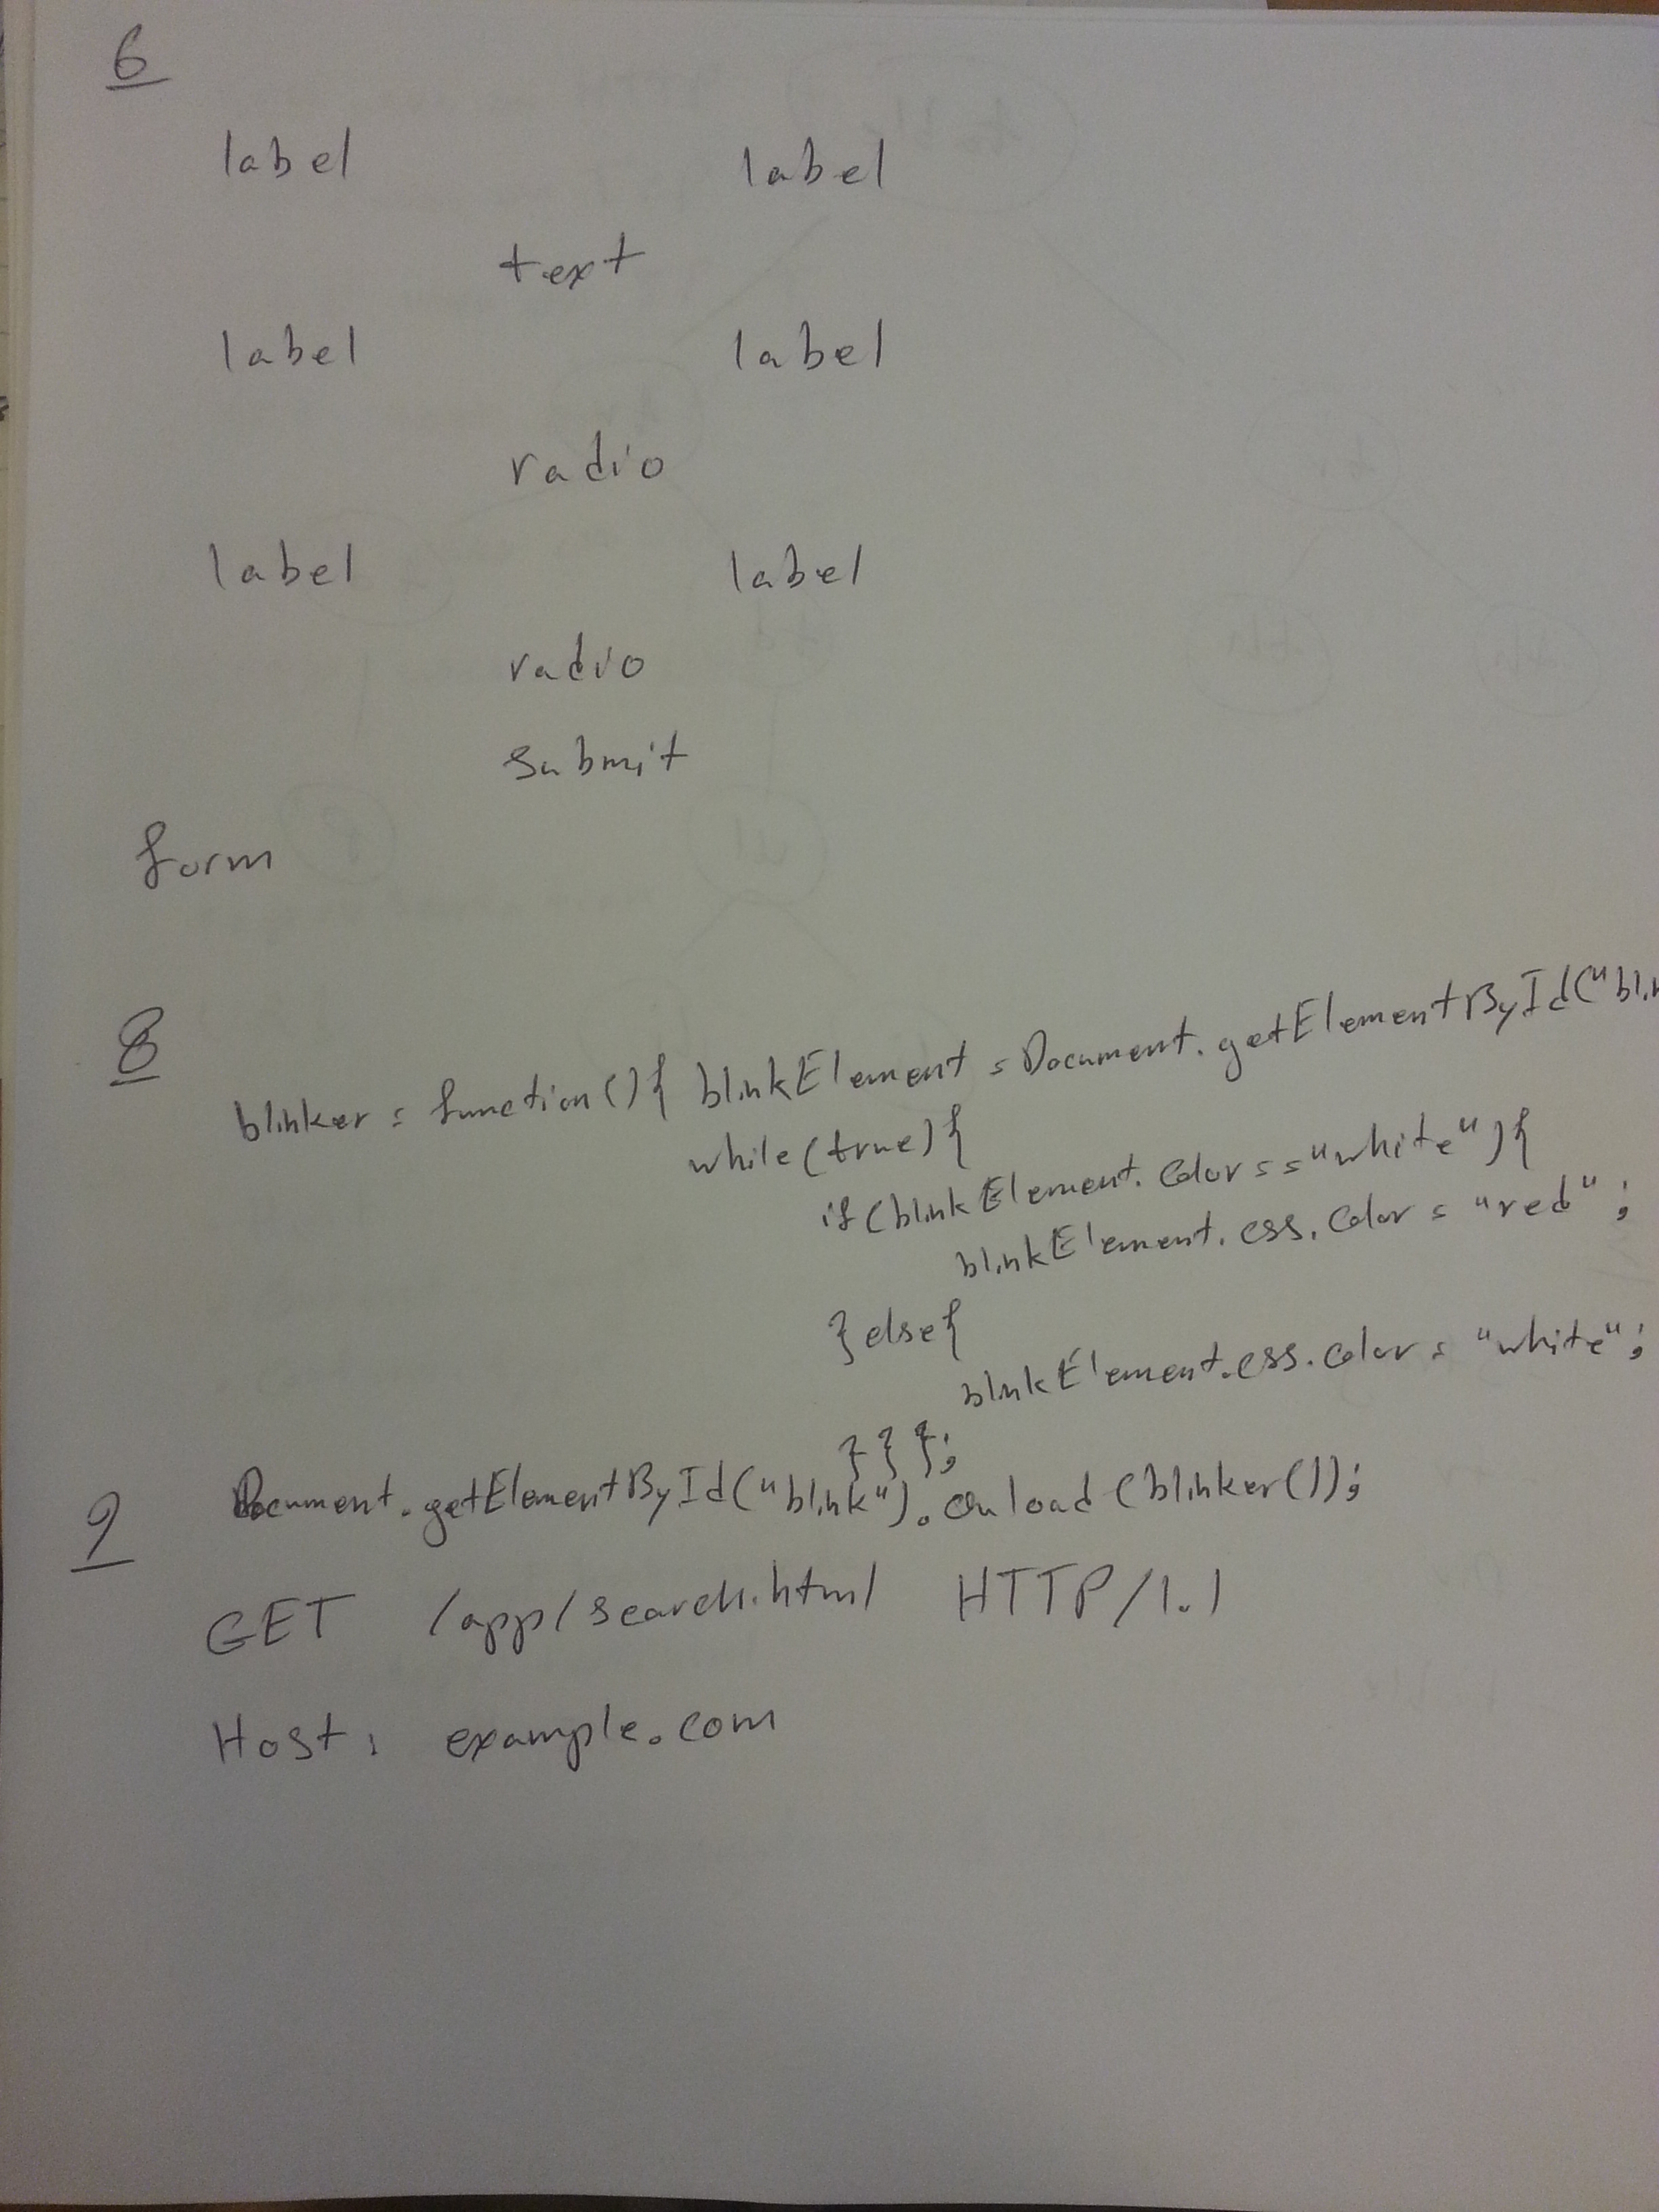 6
label label
text
label label
radio
label label
radio
submit
form
8
blinker = function(){ blinkElement = Document.getElementById("blin
while(true){
if(blinkElement.color=="white"){
blinkElement.css.color = "red";
}else{
blinkElement.css.color = "white";
}}};
Document.getElementById("blink").onload(blinker());
9
GET /app/search.html HTTP/1.1
Host: example.com